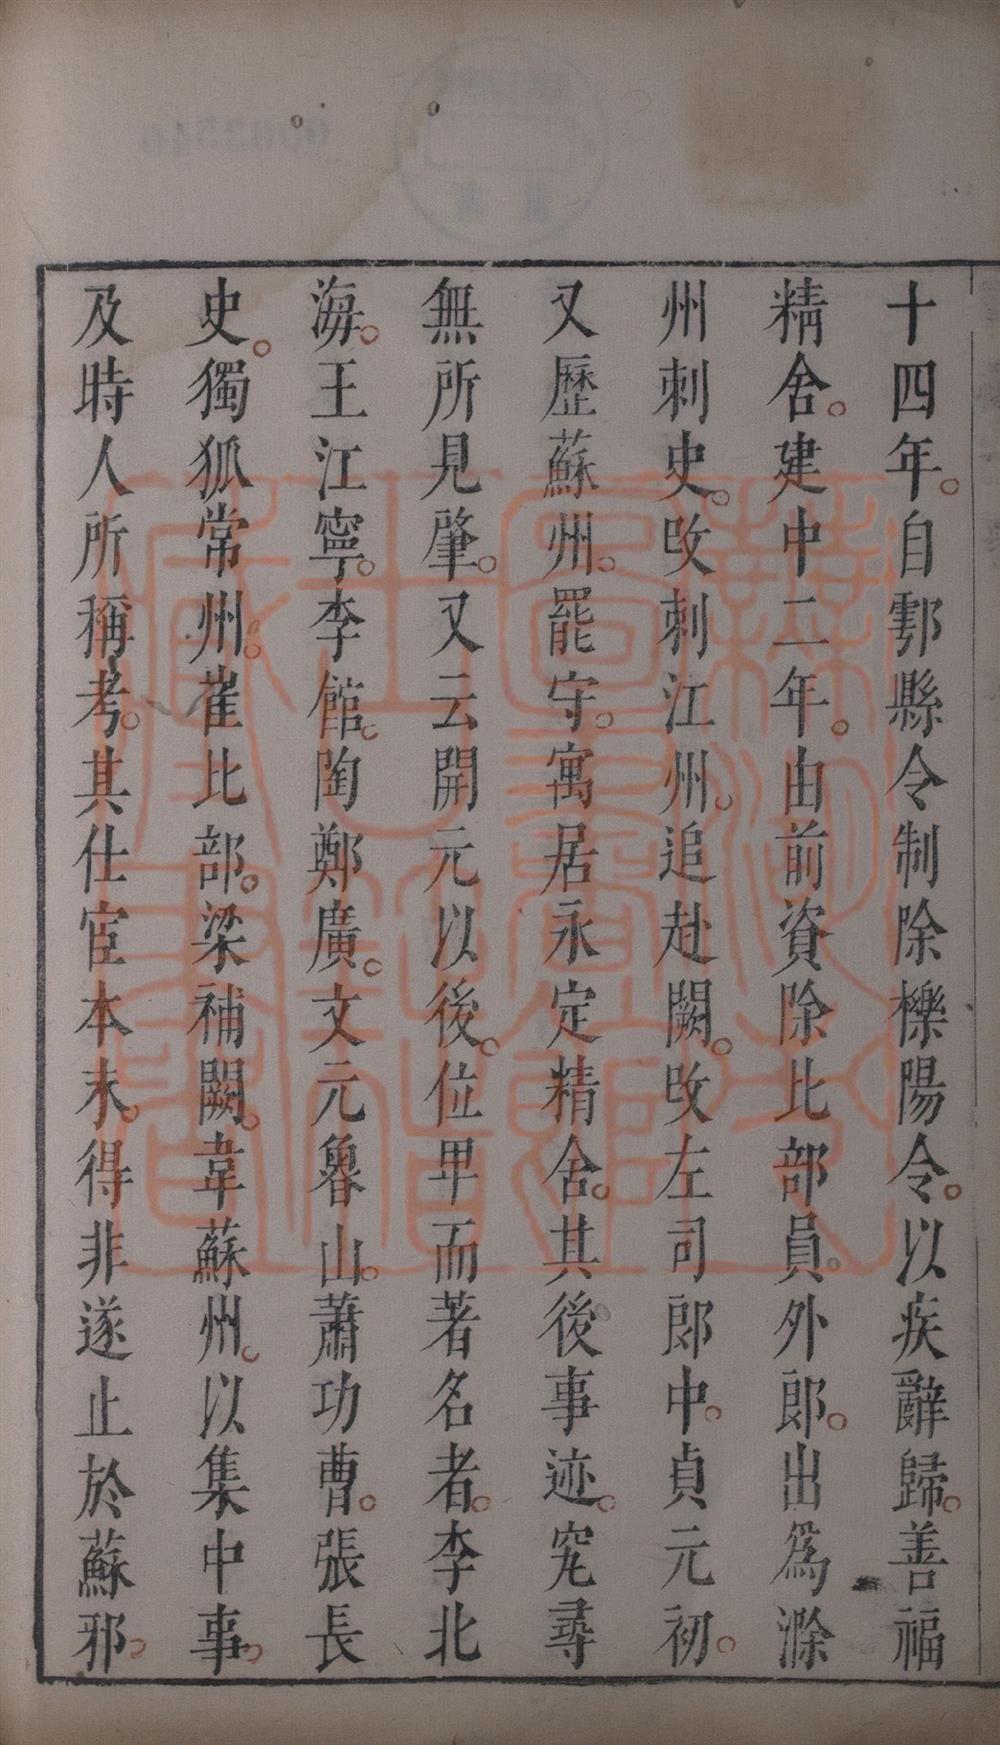 十四年。自鄠縣令制除櫟陽令。以疾辭歸。善福
精舍。建中二年。由前資除比部員外郎。出爲滁
州刺史。改刺江州。追赴闕。改左司郎中。貞元初。
又歷蘇州。罷守。寓居永定精舍。其後事迹。究尋
無所見肇。又云開元以後。位卑而著名者。李北
海。王江寧。李館。陶鄭廣。文元魯山。蕭功曹。張長
史。獨狐常州。崔比部。梁補闕。韋蘇州。以集中事。
及時人所稱考。其仕宦本末。得非遂止於蘇邪。